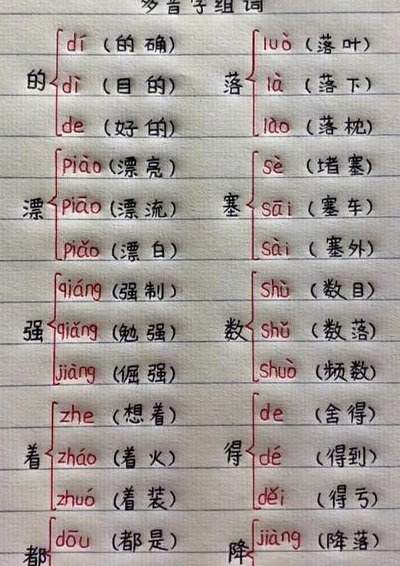 多音字组词
的 dí (的确)
dì (目的)
de (好的)
漂 piào (漂亮)
piāo (漂流)
piǎo (漂白)
强 qiáng (强制)
qiǎng (勉强)
jiàng (倔强)
着 zhe (想着)
zháo (着火)
zhuó (着装)
都 dōu (都是)
落 luò (落叶)
là (落下)
lào (落枕)
塞 sè (堵塞)
sāi (塞车)
sài (塞外)
数 shù (数目)
shǔ (数落)
shuò (频数)
得 de (舍得)
dé (得到)
děi (得亏)
降 jiàng (降落)